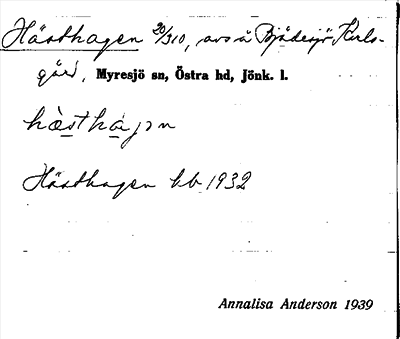 Hästhagen 20/310, avs å Bjädesjö Karls-
gård, Myresjö sn, Östra hd, Jönk. l.
hàsthàgən
Hästhagen kb 1932
Annalisa Anderson 1939